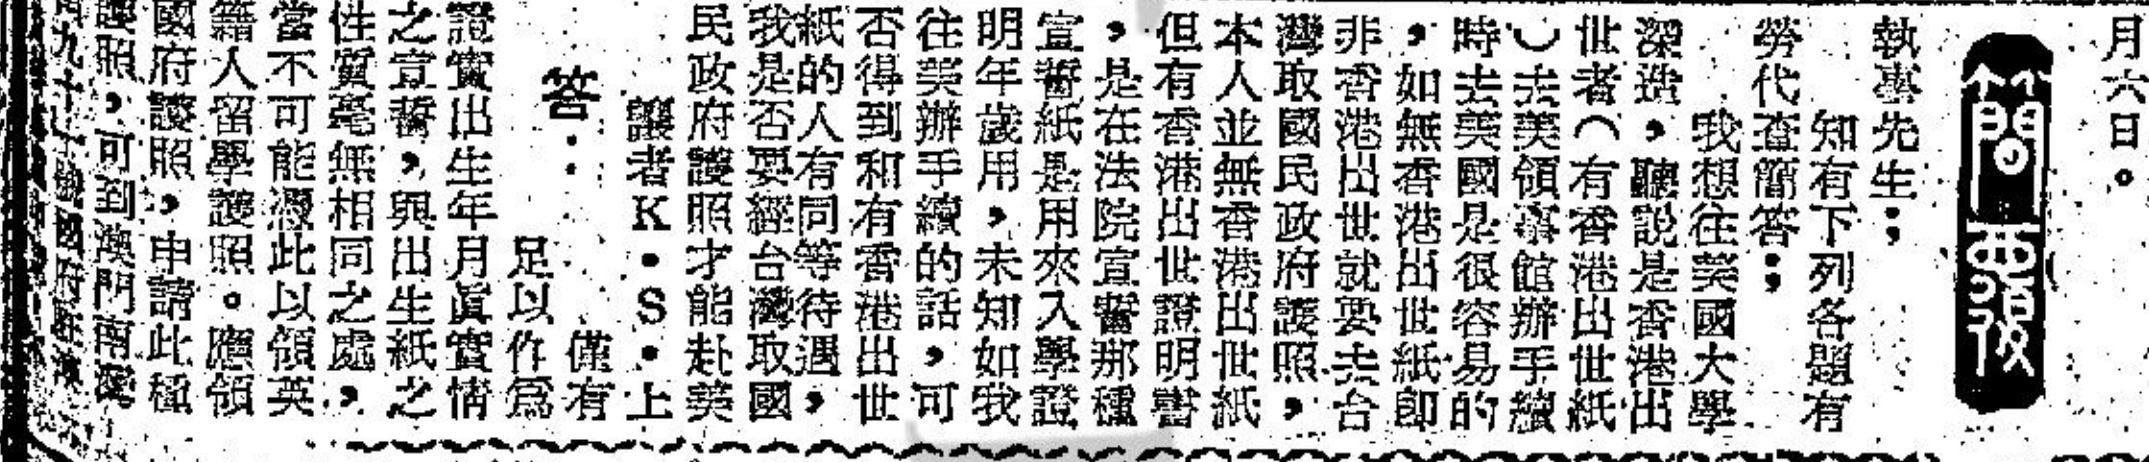 月六日。
簡覆
執事先生：
知有下列各題有
勞代查簡答：
我想往美國大學
深造，聽説是香港出
世者（有香港出世紙
）去美領事館辦手續
時去美國是很容易的
，如無香港出世紙卽
非香港出世就要去台
灣取國民政府護照，
本人並無香港出世紙
但有香港出世證明書
，是在法院宣誓那種
宣誓紙是用來入學證
明年歲用，未知如我
往美辦手續的話，可
否得到和有香港出世
紙的人有同等待遇，
我是否要經台灣取國
民政府護照才能赴美
讀者K·S·上
答：
僅有
足以作爲
證實出生年月眞實情
之宣誓，與出生紙之
性質毫無相同之處，
當不可能憑此以領英
籍人留學護照。應領
國府護照，申請此種
護照，可到澳門南灣